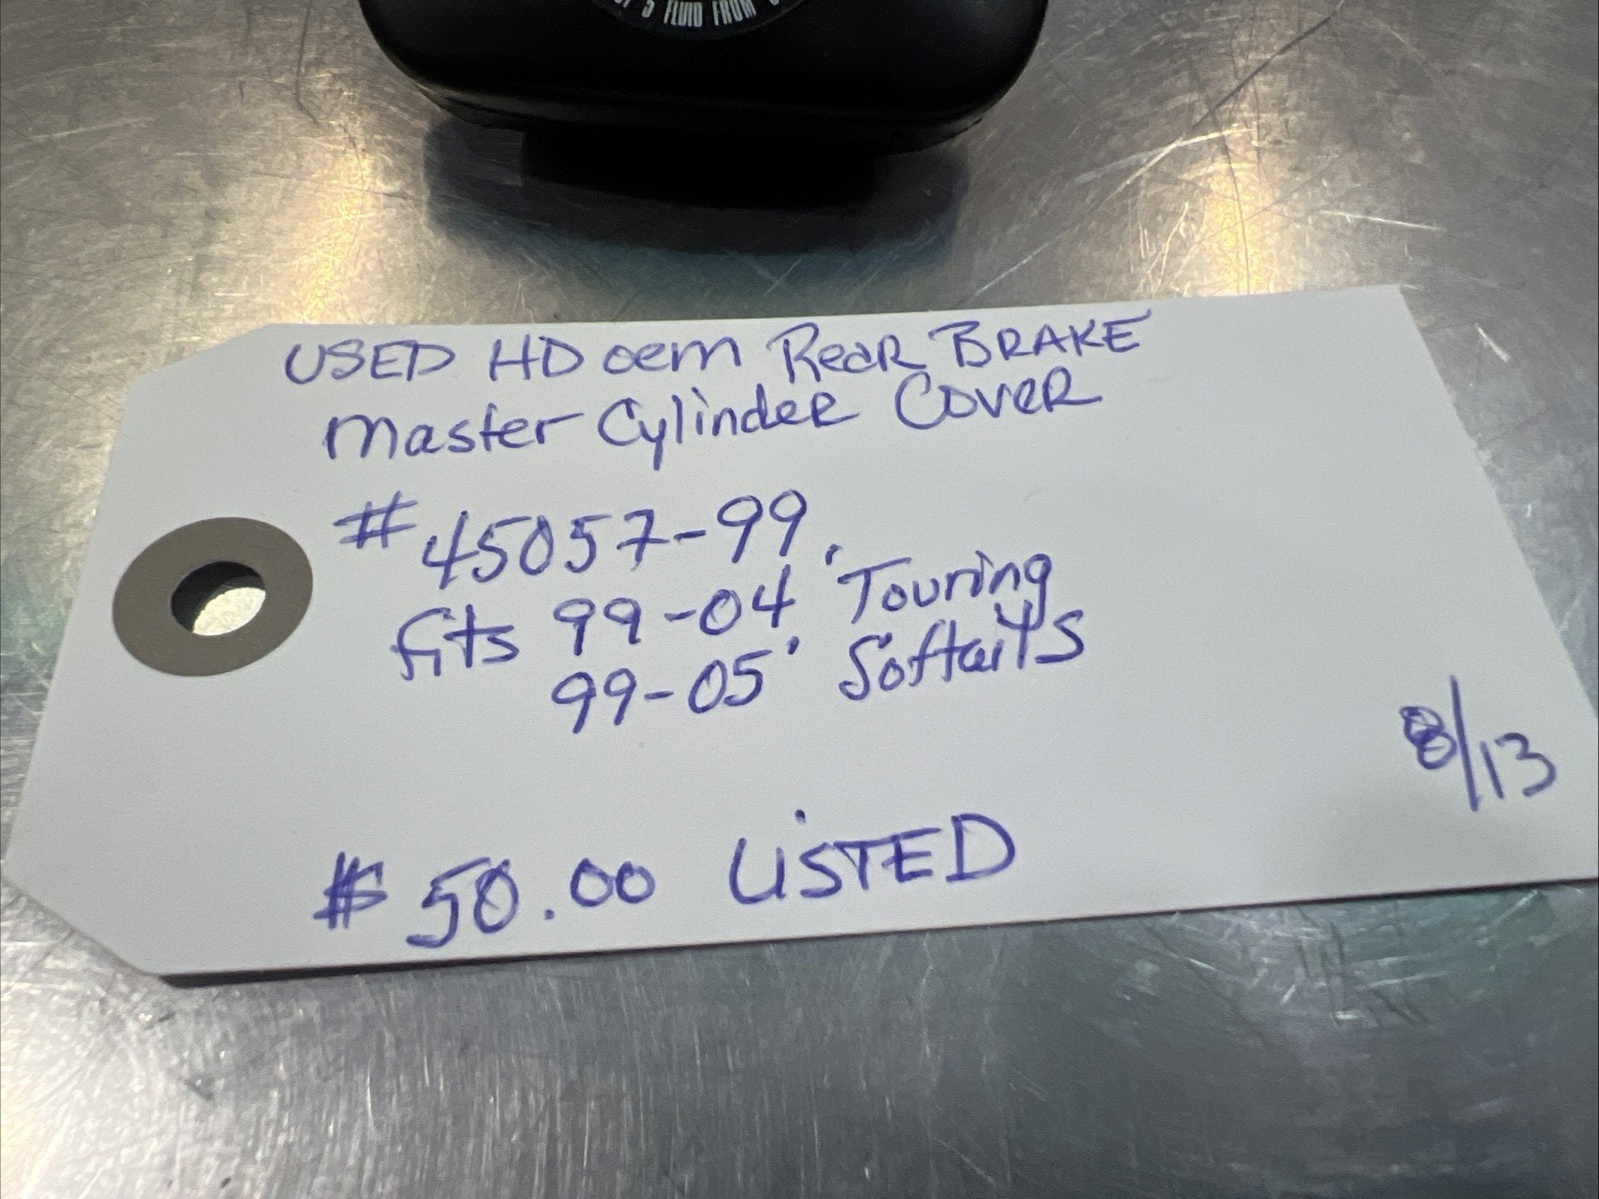 5 FLUID FROM
USED HD oem Rear BRAKE
Master Cylinder Cover
#45057-99
fits 99-04' Touring
99-05' Softails
8/13
$50.00 LiSTED